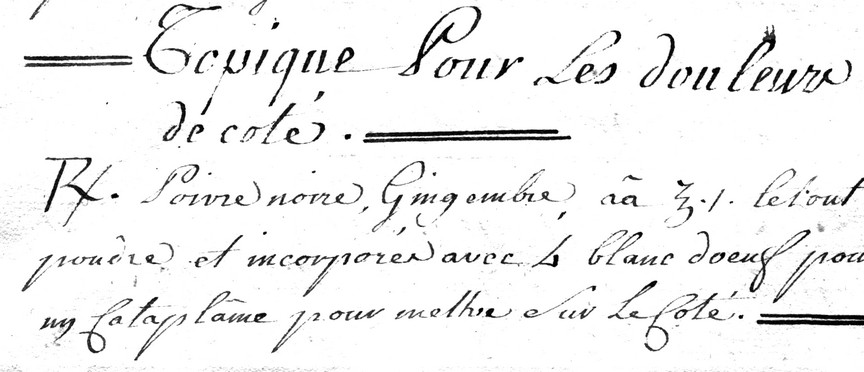 Topique Pour Les douleurs
de coté.
℞. Poivre noire, Gingembre, aã ʒ.1. le tout
poudre et incorporés avec 4 blanc doeuf pour
un Cataplâme pour mettre sur le Coté.